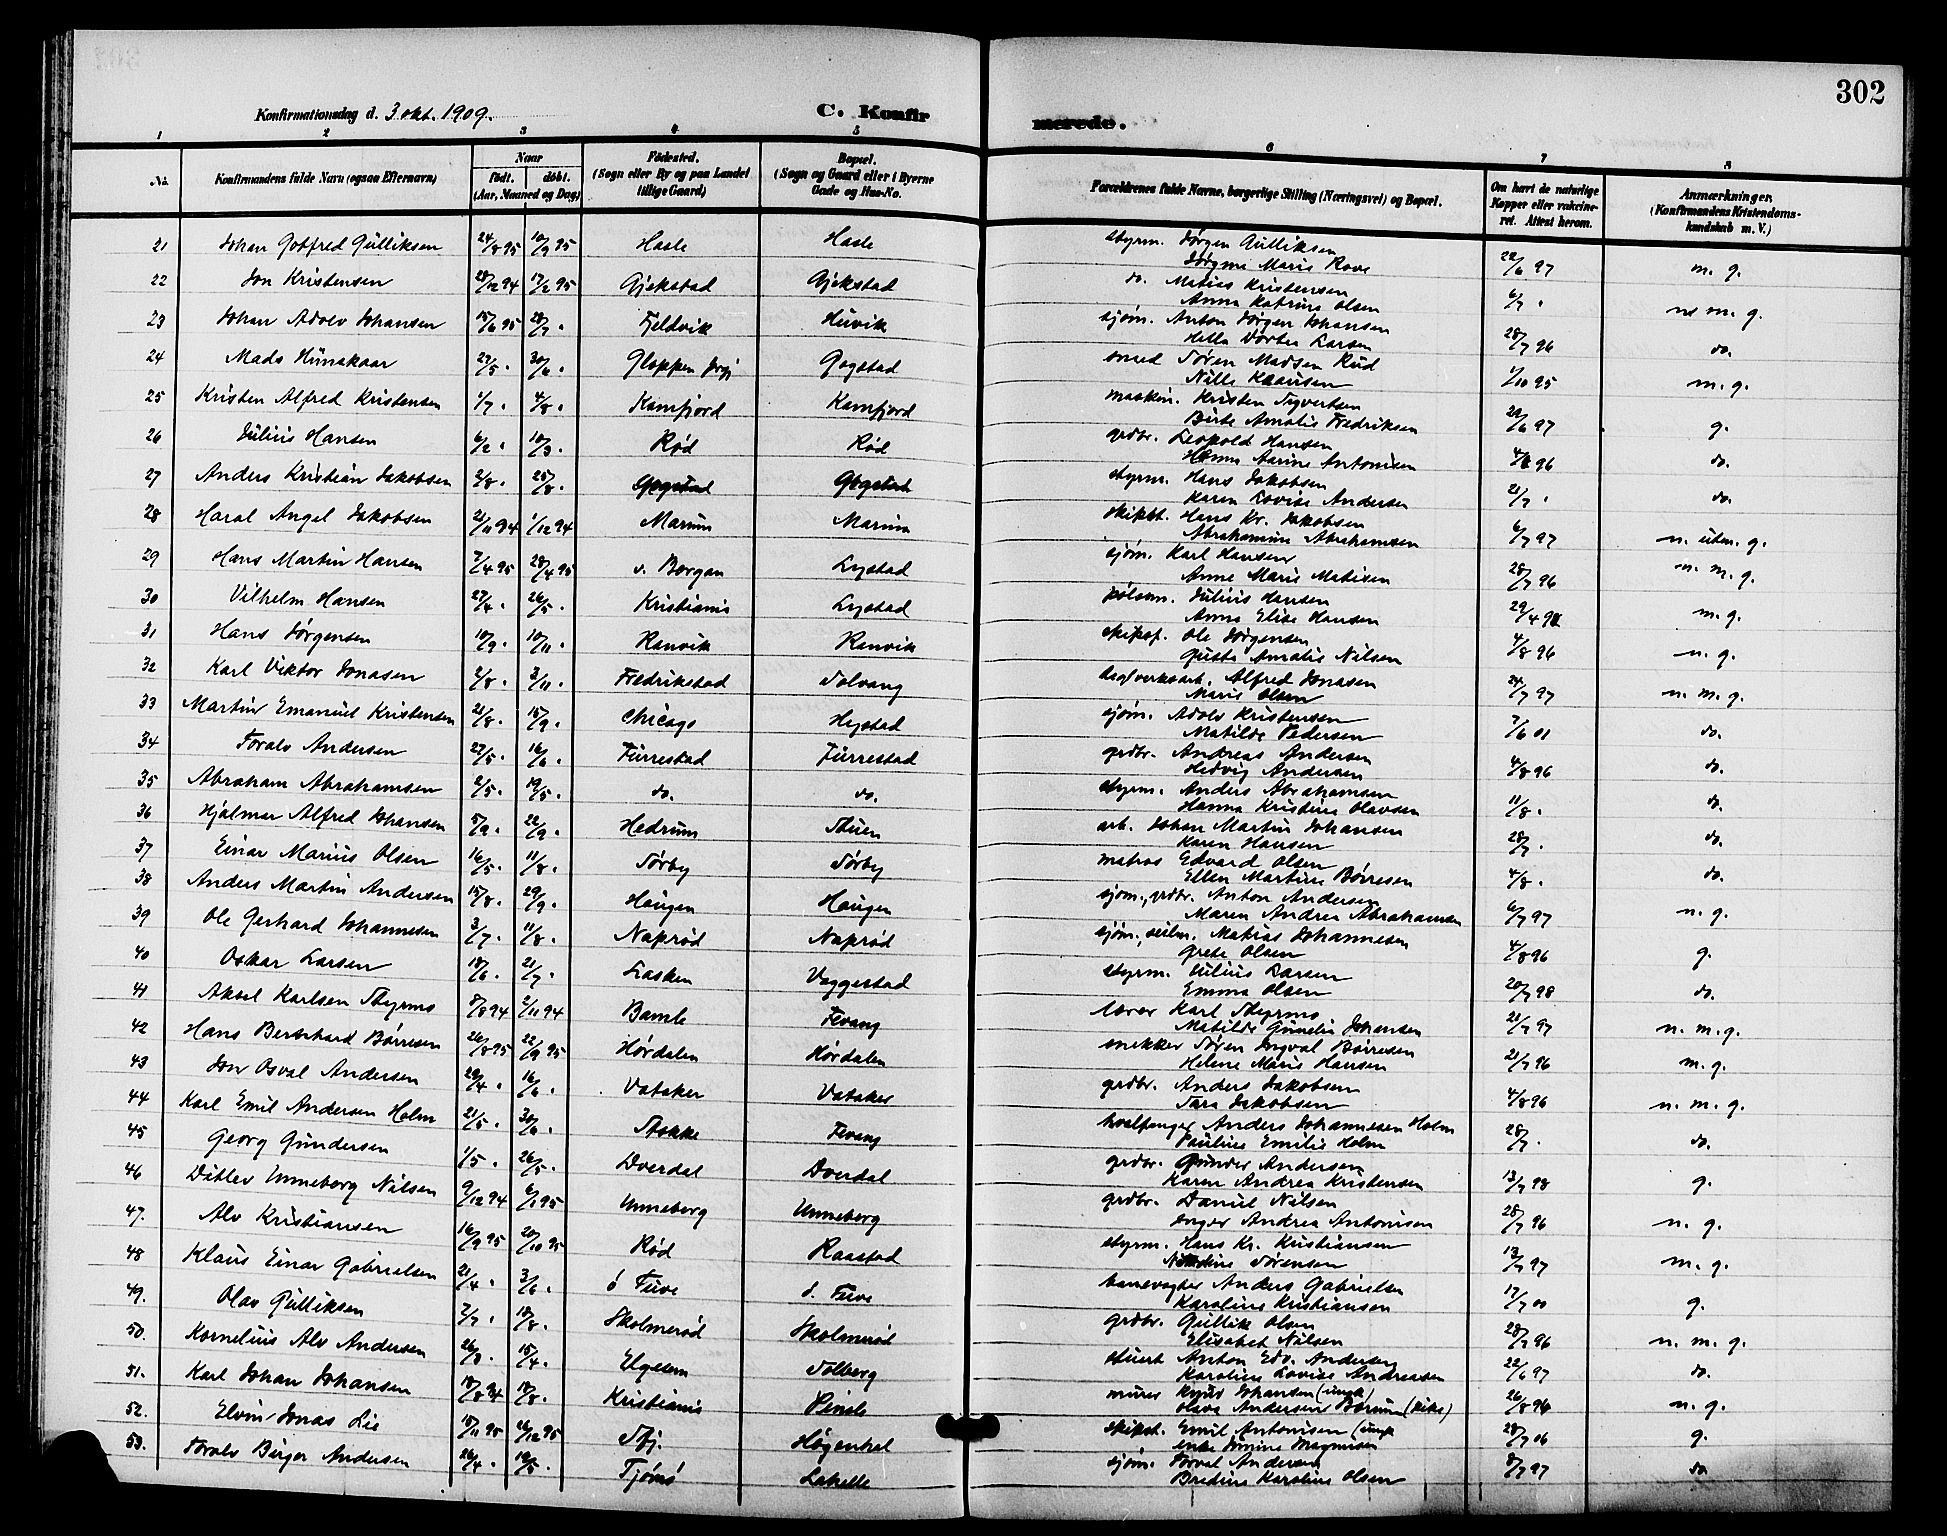 302
Konfirmationsdag d. 3 okt. 1909. C. Konfirmerede.
1 2 3 4 5 6 7 8
No. Konfirmandens fulde Navn (ogsaa Efternavn) Naar født. døbt. (Aar, Maaned og Dag) Fødested. (Sogn eller By og paa Landet tillige Gaard) Bopæl. (Sogn og Gaard eller i Byerne Gade og Hus-No. Forældrenes fulde Navne, borgerlige Stilling (Næringsvei) og Bopæl. Om havt de naturlige Kopper eller vakcineret. Attest herom. Anmærkninger. (Konfirmandens Kristendomskundskab m. V.)
21 Johan Gotfred Gulliksen 24/8 95 10/9 95 Hasle Hasle styrm. Jørgen Gulliksen
Jørgine Marie Rove 22/6 97 m. g.
22 Jon Kristensen 28/12 94 17/2 95 Gjekstad Gjekstad do. Matias Kristensen
Anna Katrine Olsen 6/7 .
23 Johan Adolv Johansen 15/6 95 28/7 . Fjeldvik Huvik sjøm. Anton Jørgen Johansen m. g.
Helle Dortea Larsen 28/7 96 do.
24 Mads Hunskaar 27/5 . 30/6 . Gloppen Gogstad smed Søren Madsen Rud
Nille Klausen 1/10 95 m. g.
25 Kristen Alfred Kristensen 1/7 . 4/8 . Kamfjord Kamfjord maskin. Kristen Syvertsen
Birte Amalie Fredriksen 22/6 97 g.
26 Julius Hansen 6/2 . 10/3 . Rød Rød grdbr. Leopold Hansen
Hanna Aarine Antonisen 96 do.
27 Anders Kristian Jakobsen 2/8 . 25/8 . Gogstad Gogstad styrm. Hans Jakobsen
Karen Lovise Andersen 21/7 . do.
28 Haral Angel Jakobsen 21/11 94 1/12 94 Marum Marum skibst. Hans Kr. Jakobsen
Abrahamine Abrahamsen 6/7 97 n. utm. g.
29 Hans Martin Hansen 7/4 95 28/4 95 v. Borgen Lystad sjøm. Karl Hansen
Anne Marie Matisen 28/7 96 n. m. g.
30 Vilhelm Hansen 27/4 . 26/5 . Kristiania Lystad pølsem. Julius Hansen
Anna Elise Hansen 29/4 m. g.
31 Hans Jørgensen 10/9 . 10/11 . Ranvik Ranvik skipsf. Ole Jørgensen
Gusta Amalie Nilsen 4/8 96 n. g.
32 Karl Viktor Jonasen 2/8 . 3/11 . Fredrikstad Solvang Alfred Jonasen
Marie Olsen 24/7 97 n. m. g.
33 Martin Emanuel Kristensen 21/8 . 15/9 . Chicago Hystad sjøm. Adolv Kristensen
Matilde Pedersen 7/6 01 do.
34 Toralv Andersen 27/5 . 16/6 . Furrestad Furrestad grdbr. Andreas Andersen
Hedvig Andersen 4/8 96 do.
35 Abraham Abrahamsen 2/5 . 19/5 . do. do. styrm. Anders Abrahamsen
Hanna Kristine Olavsen 11/8 . do.
36 Hjalmar Alfred Johansen 5/9 . 22/9 . Hedrum Stuen arb. Johan Martin Johansen
Karen Hansen 28/7 . do.
37 Einar Marius Olsen 16/5 . 11/8 . Sørby Sørby matros Edvard Olsen
Ellen Martine Børresen 4/8 . do.
38 Anders Martin Andersen 15/8 . 29/9 . Haugen Haugen sjøm., grdbr. Anton Andersen
Maren Andrea Abrahamsen 6/7 97 n. g.
39 Ole Gerhard Johannesen 3/7 . 11/8 . Naprød Naprød sjøm., seilm. Matias Johannesen
Grete Olsen 4/8 96 g.
40 Oskar Larsen 18/6 . 21/7 . Lasken Vøggestad styrm. Julius Larsen
Emma Olsen 20/7 98 do.
41 Aksel Karlsen Styrmo 8/8 94 2/11 94 Bamle Fevang lærer Karl Styrmo
Matilde Gunelia Johansen 21/7 97 n. m. g.
42 Hans Bernhard Børresen 26/8 95 22/9 95 Hørdalen Hørdalen snekker Søren Ingval Børresen
Helene Marie Hansen 21/7 96 m. g.
43 Jon Osval Andersen 29/4 . 16/6 . Vataker Vataker grdbr. Anders Jakobsen
Sara Jakobsen 4/8 96 n. m. g.
44 Karl Emil Andersen Holm 21/5 . 30/6 . Stokke Fevang hvalfanger Anders Johannesen Holm
Pauline Emilie Holm 28/7 . do.
45 Georg Gundersen 1/5 . 26/5 . Dverdal Dverdal grdbr. Gunder Andersen
Karen Andrea Kristensen 13/7 98 g.
46 Ditlev Unneberg Nilsen 9/12 94 6/1 95 Unneberg Unneberg grdbr. Daniel Nilsen
Inger Andrea Antonisen 28/7 96 n. g.
47. Alv Kristiansen 16/9 95 20/10 95 Rød Raastad styrm. Hans Kr. Kristiansen
Sørensen 13/7 97 m. g.
48 Klaus Einar Gabrielsen 21/4 . 3/6 . ø Tuve ø. Tuve banevogter Anders Gabrielsen
Karoline Kristiansen 17/7 00 g.
49. Olav Gulliksen 2/7 . 18/8 . Skolmerød Skolmerød grdbr. Gullik Olsen
Elisabet Nilsen 28/7 96 n. m. g.
50. Kornelius Alv Andersen 26/3 . 15/4 . Elgesem Solberg stuert Anton Edv. Andersen
Karoline Lovise Andreasen 22/6 97 do.
51. Karl Johan Johansen 18/8 94 18/8 . Kristiania Pindsle murer Knud Johansen (ungk)
Olava Andersen Bærum (pike) 26/8 96 n. g.
52. Elvin Jonas Lie 18/11 95 26/12 95 Sfj. Høgenhal skibst. Emil Antonisen (ungk
enke Jonine Magnussen 28/7 06 g.
53. Toralv Birger Andersen 26/4 . Tjømø Lakelle sjøm. Torval Andersen
Bredine Karoline Olsen 8/7 97 do